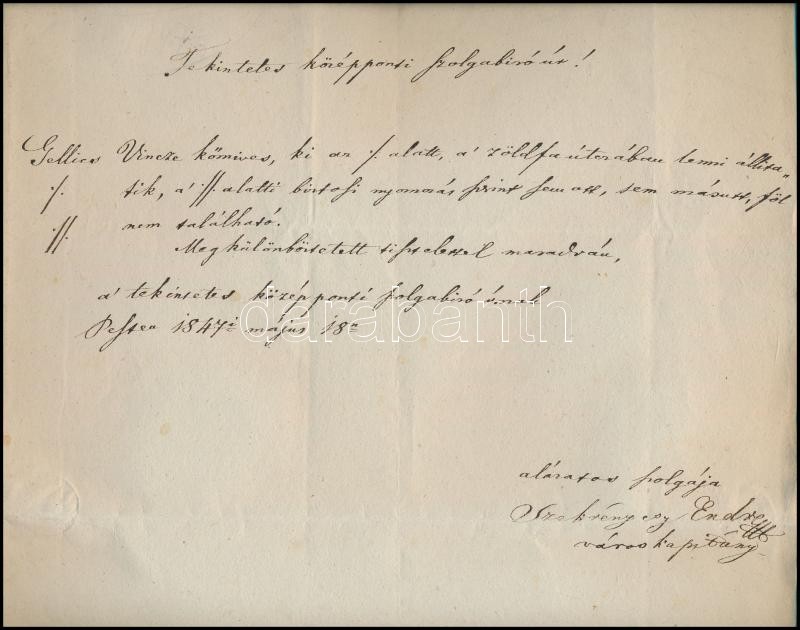 Tekintetes középponti szolgabíró úr!
Gellics Vincze kőmives, ki az ·/. alatt, a' zöldfa útczában lenni állita-
·/. tik, a' ·//. alatti biztosi nyomozás szerint sem ott, sem másutt, föl
·//. nem található.
Megkülönböztetett tisztelettel maradván,
a' tekintetes középponti szolgabíró úrnak
Pesten 1847i május 18n
darabanth
alázatos szolgája
Szekrényesy Endre
városkapitány